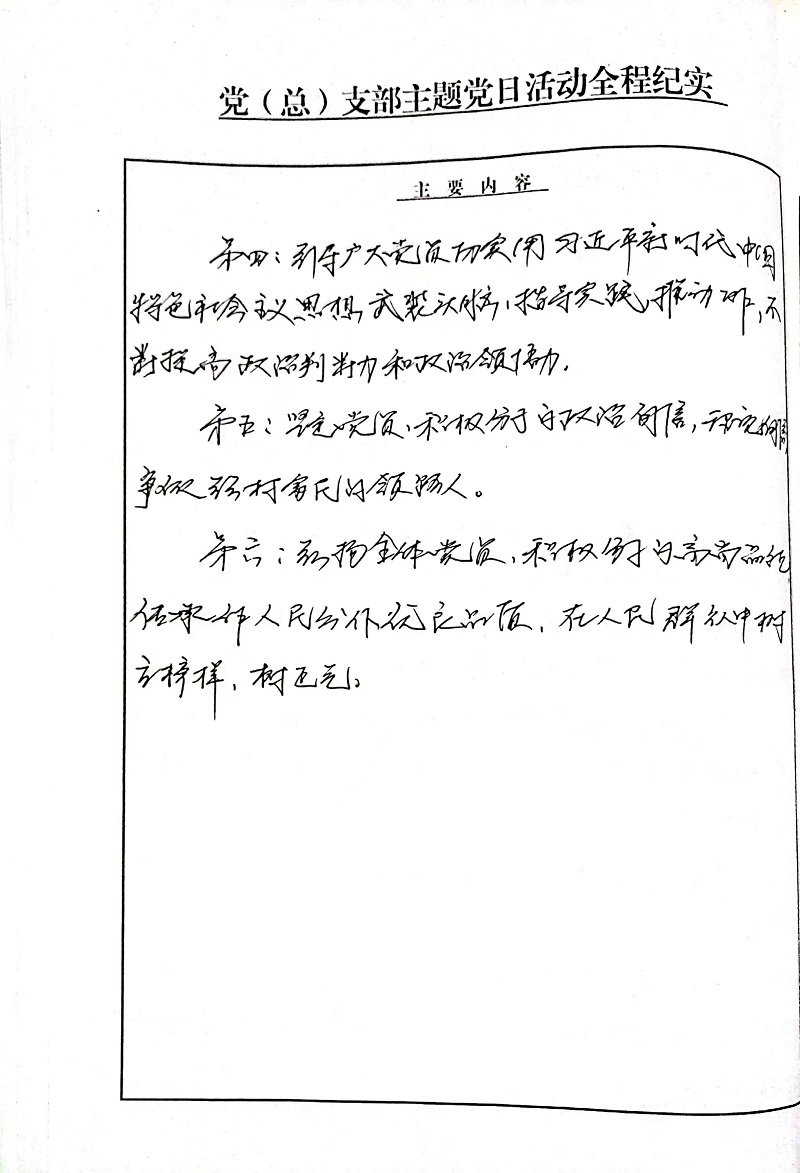 党（总）支部主题党日活动全程纪实
主要内容
第四：引导广大党员切实用习近平新时代中国
特色社会主义思想武装头脑，指导实践，推动工作，不
断提高政治判断力和政治领悟力。
第五：坚定党员、积极分子的政治
村富民的领路人。
第六：引扬全体党员、积极分子的高尚品德
传承 人民 优良品质，在人民群众中树
立榜样，树正气。